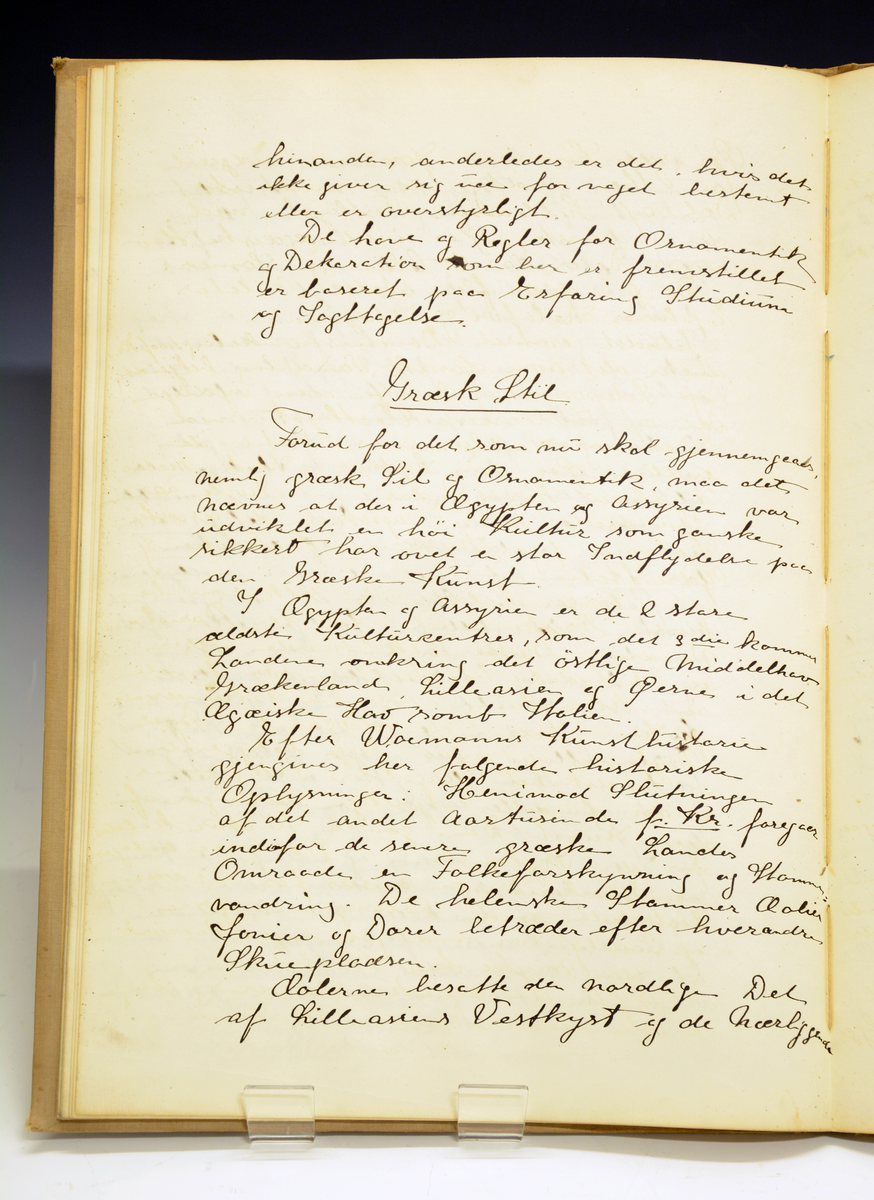 hinanden, anderledes er det, hvis det
ikke giver sig ud for noget bestemt
eller er overstyrligt.
De love og Regler for Ornamentik
og Dekoration som her er fremstillet
er baseret paa Erfaring Studium
og Iagttagelse.
Græsk Stil
Forud for det som nu skal gjennemgaaes,
nemlig græsk Stil og Ornamentik, maa det
nævnes at der i Ægypten og Assyrien var
udviklet en höi Kultur som ganske
sikkert har övet en stor Indflydelse paa
den Græske Kunst.
I Ægypten og Assyrien er de 2 store
ældste Kulturcentrer, som det 3 die kommer
Landene omkring det östlige Middelhav
Grækenland, Lilleasien og Øerne i det
Ægæiske Hav samt Italien.
Efter Woermanns Kunsthistorie
gjengives her følgende historiske
Oplysninger: Henimod Slutningen
af det andet Aartusinde f. Kr. foregaar
indenfor de senere græske Landes
Omraade en Folkeforskyvning og Stamme-
vandring. De helenske Stammer Æolier
Jonier og Dorer betræder efter hverandre
Skuepladsen.
Æolerne besatte den nordlige Del
af Lilleasiens Vestkyst og de Nærliggende